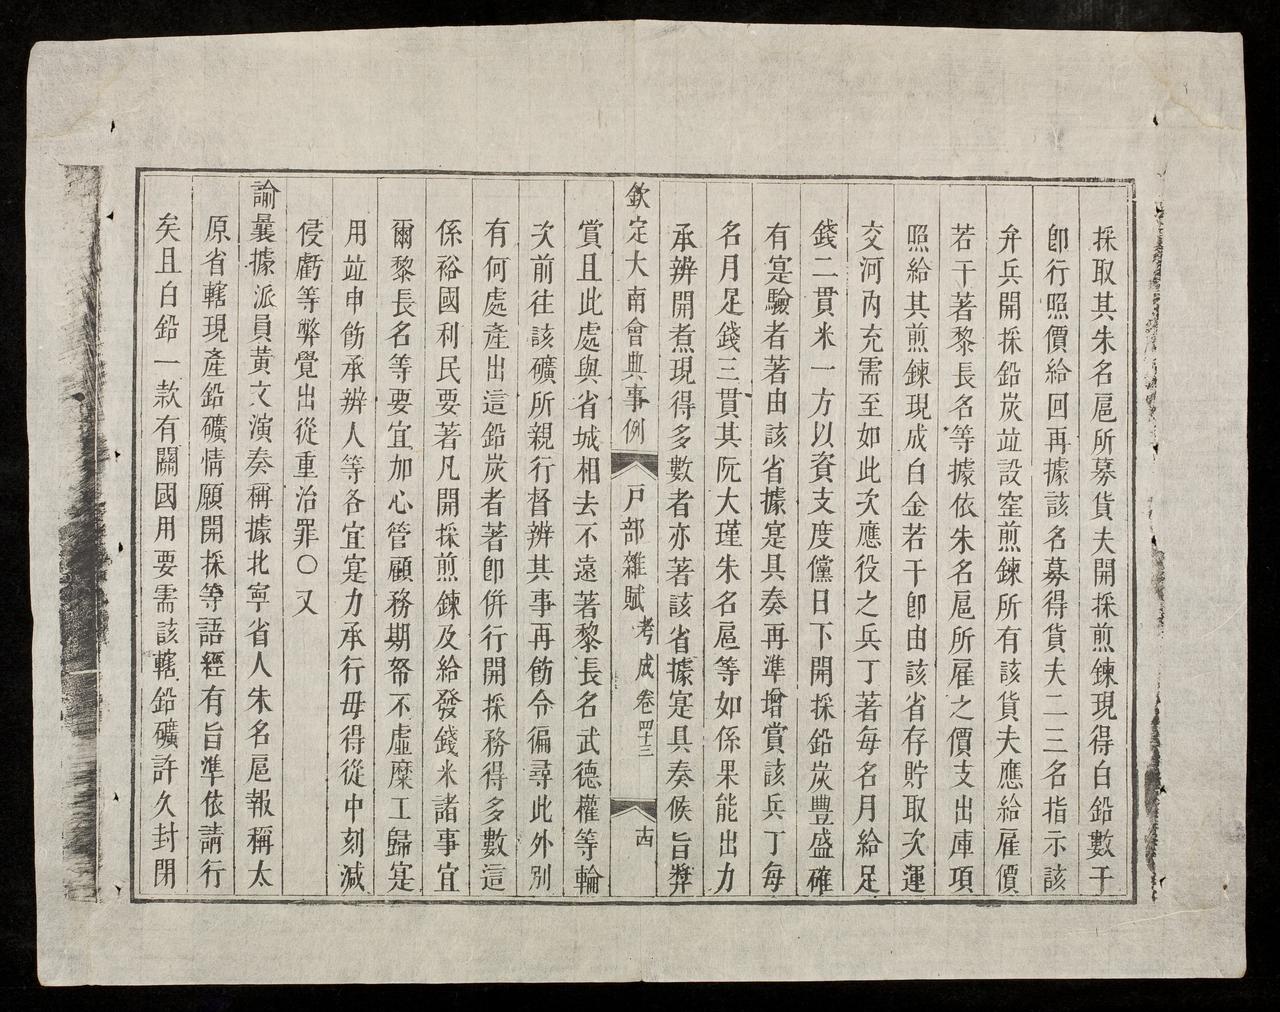 採取其朱名扈所募貨夫開採煎鍊現得白鉛數干
卽行照價給回再據該名募得貨夫二三名指示該
弁兵開採鉛炭竝設窑煎鍊所有該貨夫應給雇價
若干著黎長名等據依朱名扈所雇之價支出庫項
照給其煎鍊現成白金若干卽由該省存貯取次運
交河內充需至如此次應役之兵丁著每名月給足
錢二貫米一方以資支度儻日下開採鉛炭豐盛確
有寔驗者著由該省據寔具奏再準增賞該兵丁每
名月足錢三貫其阮大瑾朱名扈等如係果能出力
承辨開煮現得多數者亦著該省據寔具奏候旨獎
欽定大南會典事例 戶部雜賦 考成卷四十三 十四
賞且此處與省城相去不遠著黎長名武德權等輪
次前往該礦所親行督辨其事再飭令徧尋此外別
有何處產出這鉛炭者著卽併行開採務得多數這
係裕國利民要著凡開採煎鍊及給發錢米諸事宜
爾黎長名等要宜加心管顧務期帑不虛糜工歸寔
用竝申飭承辨人等各宜寔力承行毋得從中刻減
侵虧等弊覺出從重治罪〇又
諭曩據派員黃文演奏稱據北寧省人朱名扈報稱太
原省轄現產鉛礦情願開採等語經有旨準依請行
矣且白鉛一款有關國用要需該轄鉛礦許久封閉